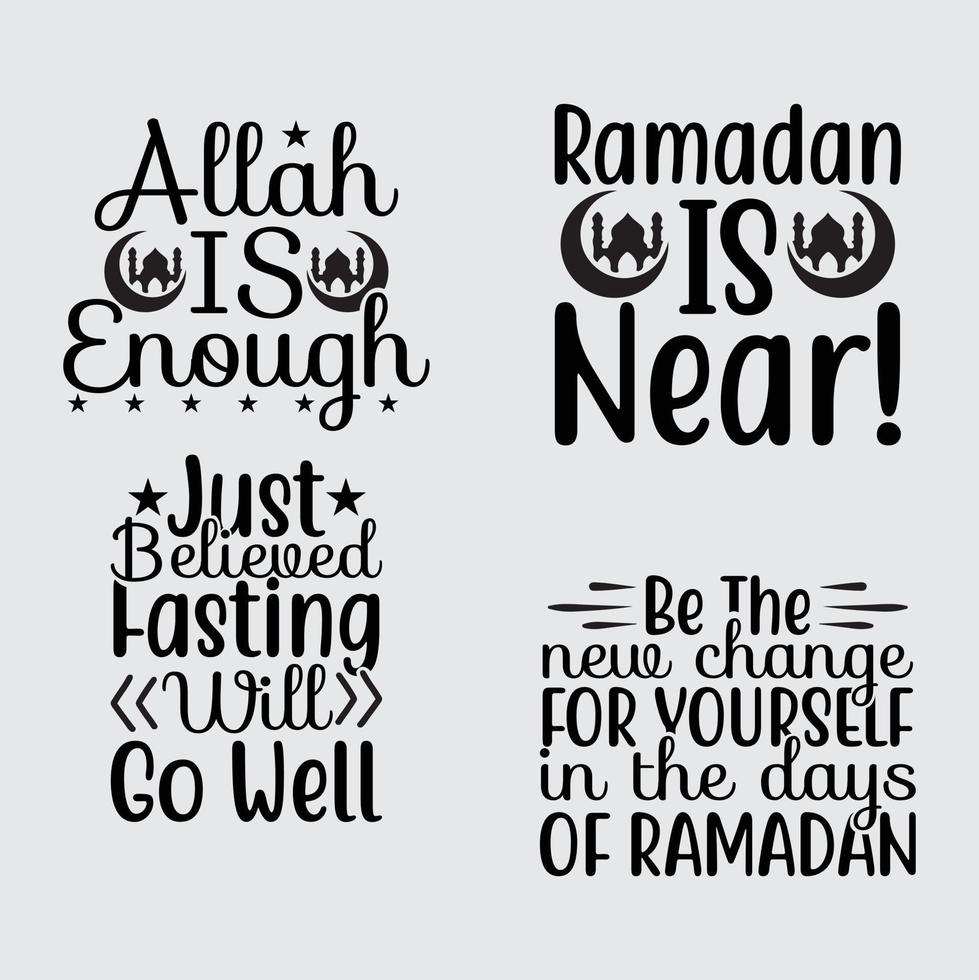 Allah
IS
Enough
Ramadan
IS
Near!
Just
Believed
Fasting
Will
Go Well
Be The
new change
FOR YOURSELF
in the days
OF RAMADAN